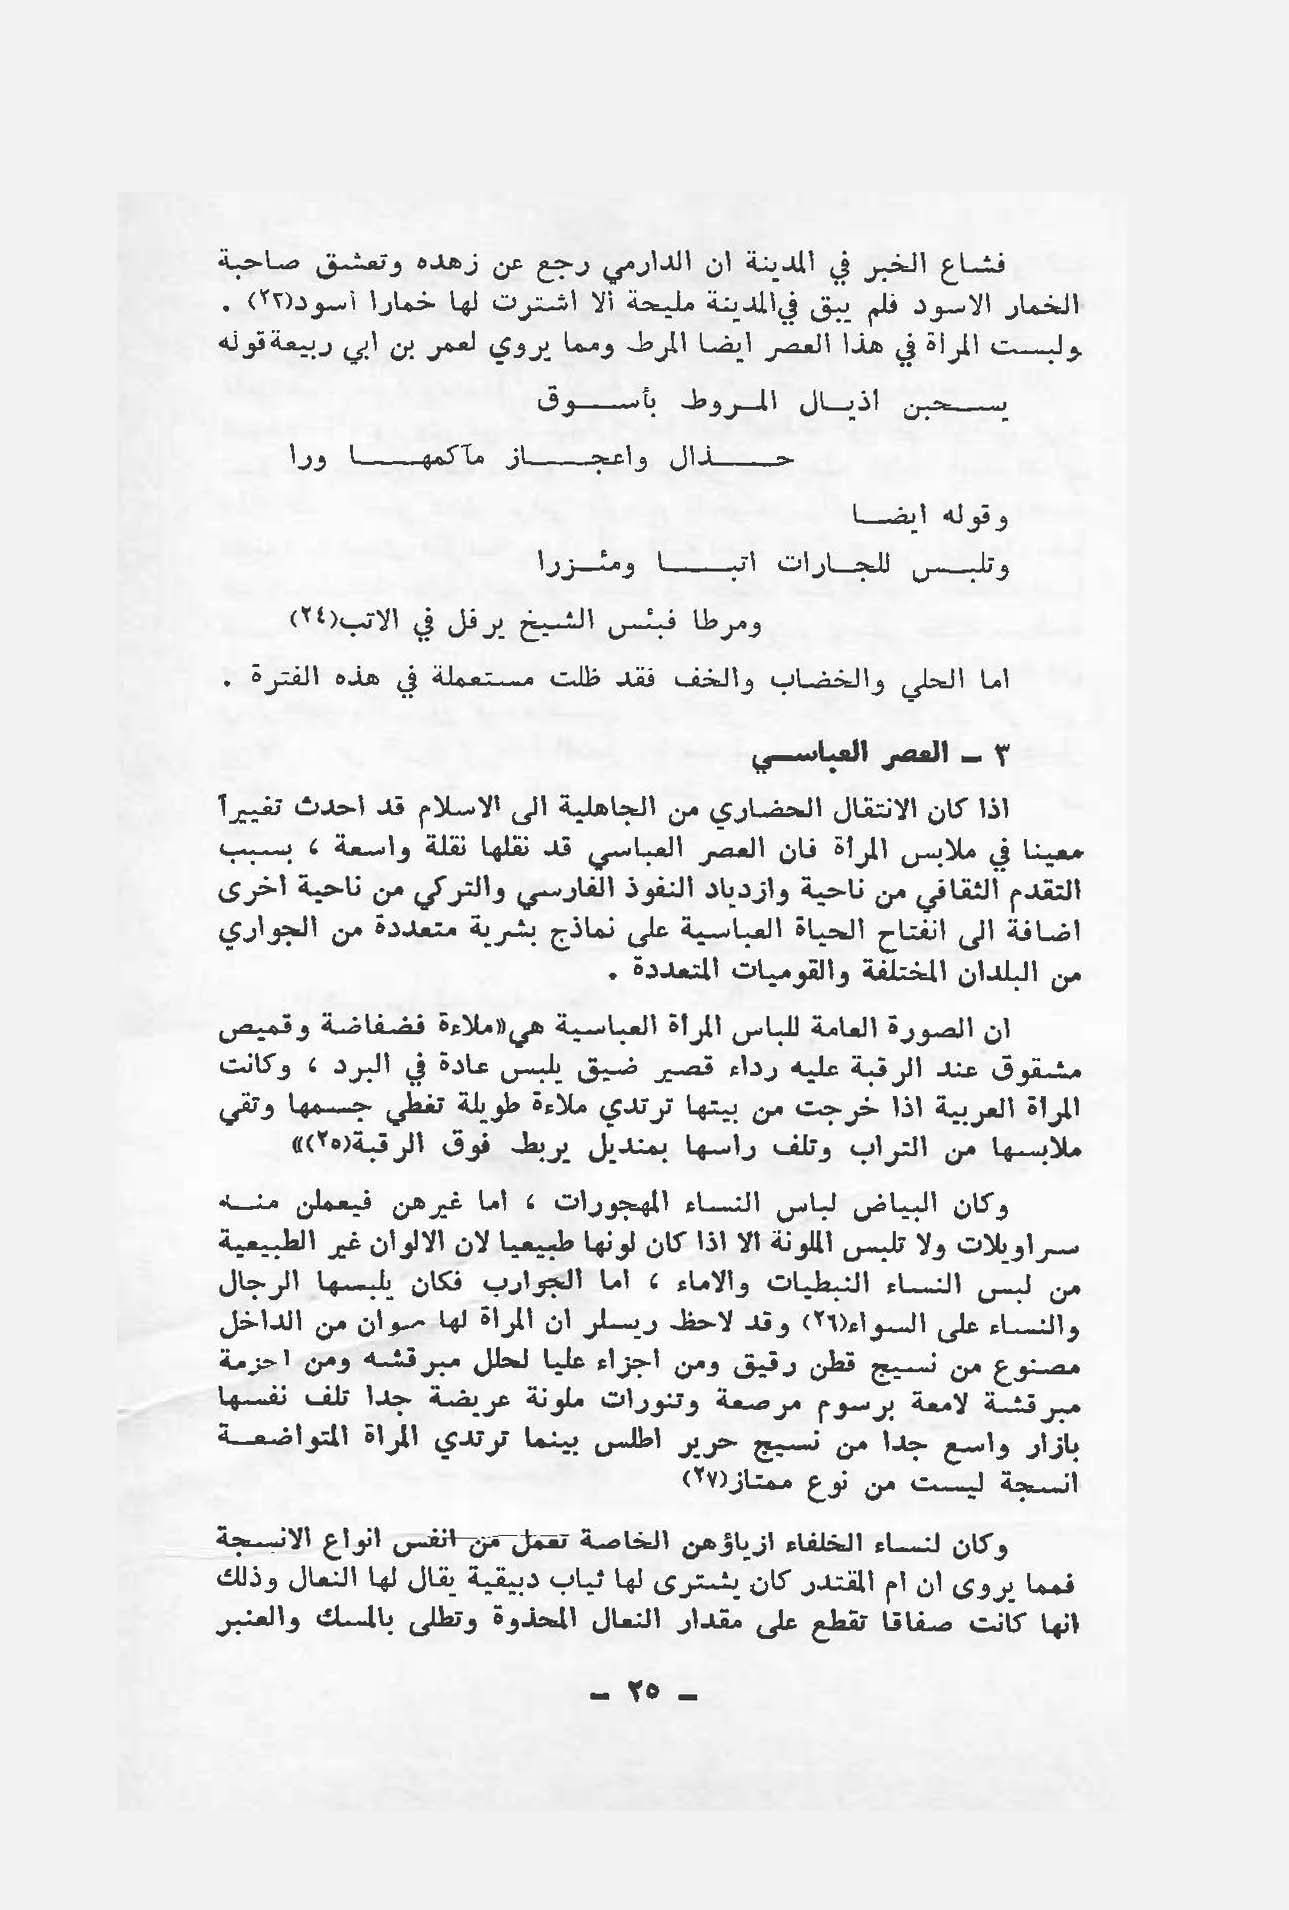 فشاع الخبر في المدينة ان الدارمي رجع عن زهده وتعشق صاحبة
الخمار الاسود فلم يبق في المدينة مليحة ألا اشترت لها خمارا أسود(٢٢) .
ولبست المرأة في هذا العصر ايضا المرط ومما يروي لعمر بن ابي ربيعة قوله
يسحبن اذيال المروط بأسوق
خذال واعجاز مآكمها ورا
وقوله ايضا
وتلبس للجارات اتبا ومئزرا
ومرطا فبئس الشيخ يرفل في الاتب(٢٤)
اما الحلي والخضاب والخف فقد ظلت مستعملة في هذه الفترة .
٣ – العصر العباسي
اذا كان الانتقال الحضاري من الجاهلية الى الاسلام قد احدث تغييراً
معينا في ملابس المرأة فان العصر العباسي قد نقلها نقلة واسعة ، بسبب
التقدم الثقافي من ناحية وازدياد النفوذ الفارسي والتركي من ناحية اخرى
اضافة الى انفتاح الحياة العباسية على نماذج بشرية متعددة من الجواري
من البلدان المختلفة والقوميات المتعددة .
ان الصورة العامة للباس المرأة العباسية هي«ملاءة فضفاضة وقميص
مشقوق عند الرقبة عليه رداء قصير ضيق يلبس عادة في البرد ، وكانت
المرأة العربية اذا خرجت من بيتها ترتدي ملاءة طويلة تغطي جسمها وتقي
ملابسها من التراب وتلف راسها بمنديل يربط فوق الرقبة(٢٥)»
وكان البياض لباس النساء المهجورات ، اما غيرهن فيعملن منه
سراويلات ولا تلبس الملونة الا اذا كان لونها طبيعيا لان الالوان غير الطبيعية
من لبس النساء النبطيات والاماء ، اما الجوارب فكان يلبسها الرجال
والنساء على السواء(٢٦) وقد لاحظ ريسلر ان المرأة لها من الداخل
مصنوع من نسيج قطن رقيق ومن اجزاء عليا لحلل مبرقشه ومن احزمة
مبرقشة لامعة برسوم مرصعة وتنورات ملونة عريضة جدا تلف نفسها
بازار واسع جدا من نسيج حرير اطلس بينما ترتدي المرأة المتواضعة
انسجة ليست من نوع ممتاز(٢٧)
وكان لنساء الخلفاء ازياؤهن الخاصة تعمل من انفس انواع الانسجة
فمما يروى ان ام المقتدر كان يشترى لها ثياب دبيقية يقال لها النعال وذلك
انها كانت صفاقا تقطع على مقدار النعال المحذوة وتطلى بالمسك والعنبر
– ٢٥ –